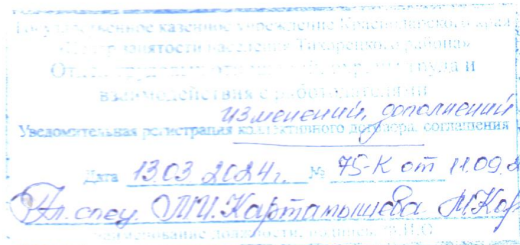 Государственное казенное учреждение Краснодарского края
«Центр занятости населения Тихорецкого района»
Отдел труда и
взаимодействия с работодателями
изменений, дополнений
Уведомительная регистрация коллективного договора, соглашения
Дата 13.03.2024г. № 75-К от 11.09.2
Гл. спец. М.Кар
должности, подпись, Ф.И.О